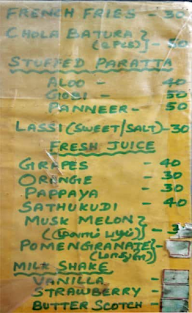 FRENCH FRIES - 50
CHOLA BATURA
(2 PCS) - 50
STUFFED PARATTA
ALOO - 40
GIOBI - 50
PANNEER - 50
LASSI (SWEET/SALT) - 30
FRESH JUICE
GRAPES - 40
ORANGE - 30
PAPPAYA - 30
SATHUKUDI - 40
MUSK MELON
POMENGIRANATE
MILK SHAKE
VANILLA
STRAWBERRY
BUTTER SCOTCH